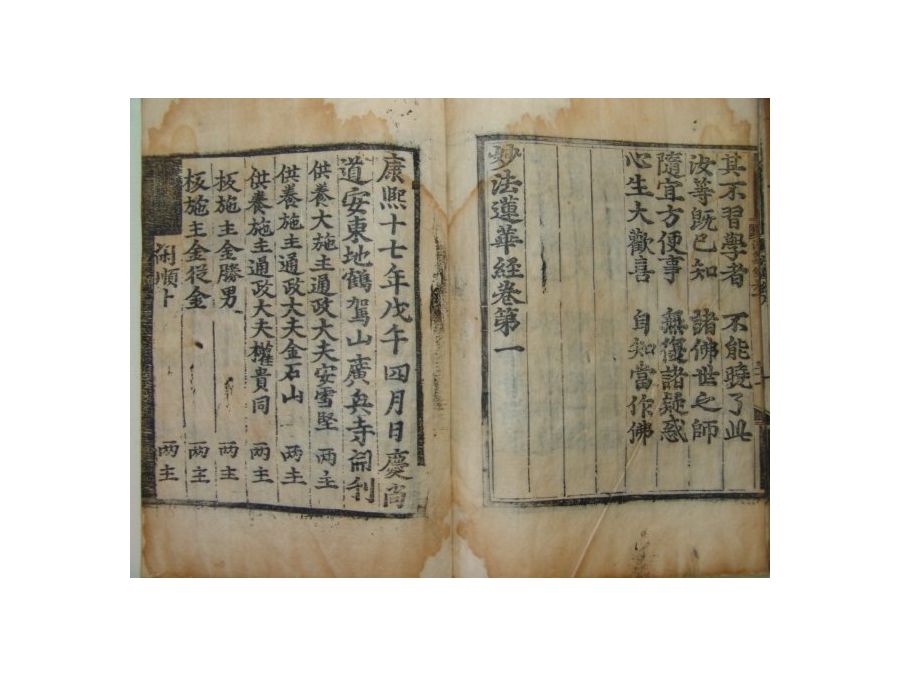 其不習學者 不能曉了此
汝等既已知 諸佛世之師
隨宜方便事 無復諸疑惑
心生大歡喜 自知當作佛
妙法蓮華経卷第一
康熙十七年戊午四月日慶尚
道安東地鶴駕山廣興寺開刊
供養大施主通政大夫安雪堅 兩主
供養施主通政大夫金石山 兩主
供養施主通政大夫權貴同 兩主
板施主金勝男 兩主
板施主金従金 兩主